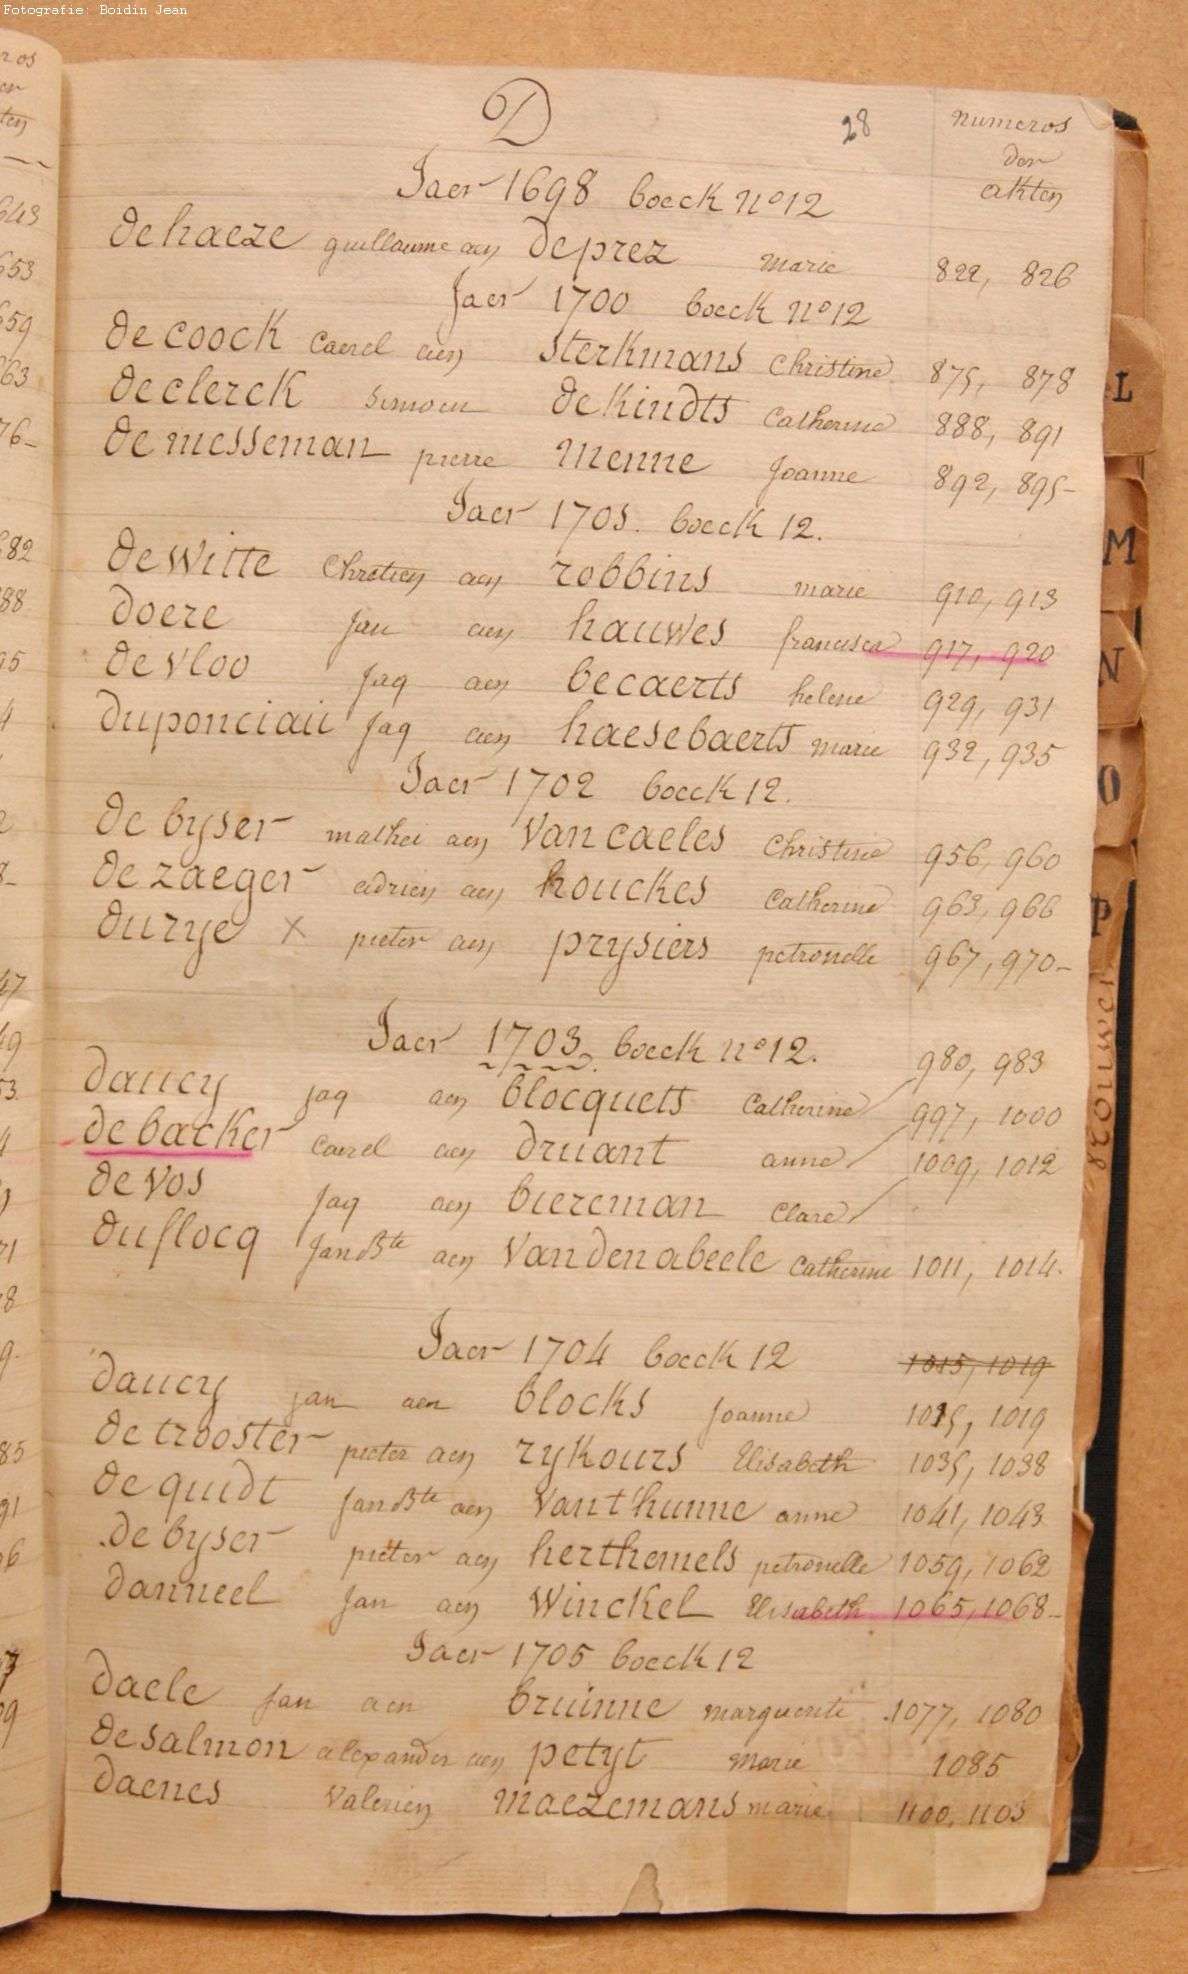 Fotografie: Boidin Jean
D
28
numeros
der
akten
Jaer 1698 boeck no 12
de haeze guillaume aen deprez marie 822, 826
Jaer 1700 boeck no 12
de coock Caerel aen sterkmans Christine 875, 878
de clerck Simoen de Kindts Catherine 888, 891
de messeman pierre menne Joanne 892, 895-
Jaer 1701. boeck 12.
de Witte Chretien aen robbins marie 910, 913
doere Jan aen hauwes francisca 917, 920
de vloo Jaq aen becaerts helene 929, 931
duponciau Jaq aen haesebaerts marie 932, 935
Jaer 1702 boeck 12.
de byser mathei aen Van caeles Christine 956, 960
de zaeger adrien aen houckes Catherine 963, 966
durye x pieter aen prysiers petronelle 967, 970-
Jaer 1703. boeck no 12.
daucy Jaq aen blocquets Catherine 980, 983
de backer Caerel aen druant anne 997, 1000
de vos Jaq aen biereman Clare 1009, 1012
duflocq Jan Bte aen Vandenabeele Catherine 1011, 1014.
Jaer 1704 boeck 12 1015, 1019
daucy jan aen blocks Joanne 1015, 1019
de trooster pieter aen rykours Elisabeth 1035, 1038
de quidt Jan Bte aen Van t'hunne anne 1041, 1043
de byser pieter aen herthemels petronelle 1059, 1062
danneel Jan aen Winckel Elisabeth 1065, 1068-
Jaer 1705 boeck 12
daele Jan aen bruinne marguerite 1077, 1080
de salmon alexander aen petyt Marie 1085
daenes Valerien maezemans marie 1100, 1103
L
M
N
O
P